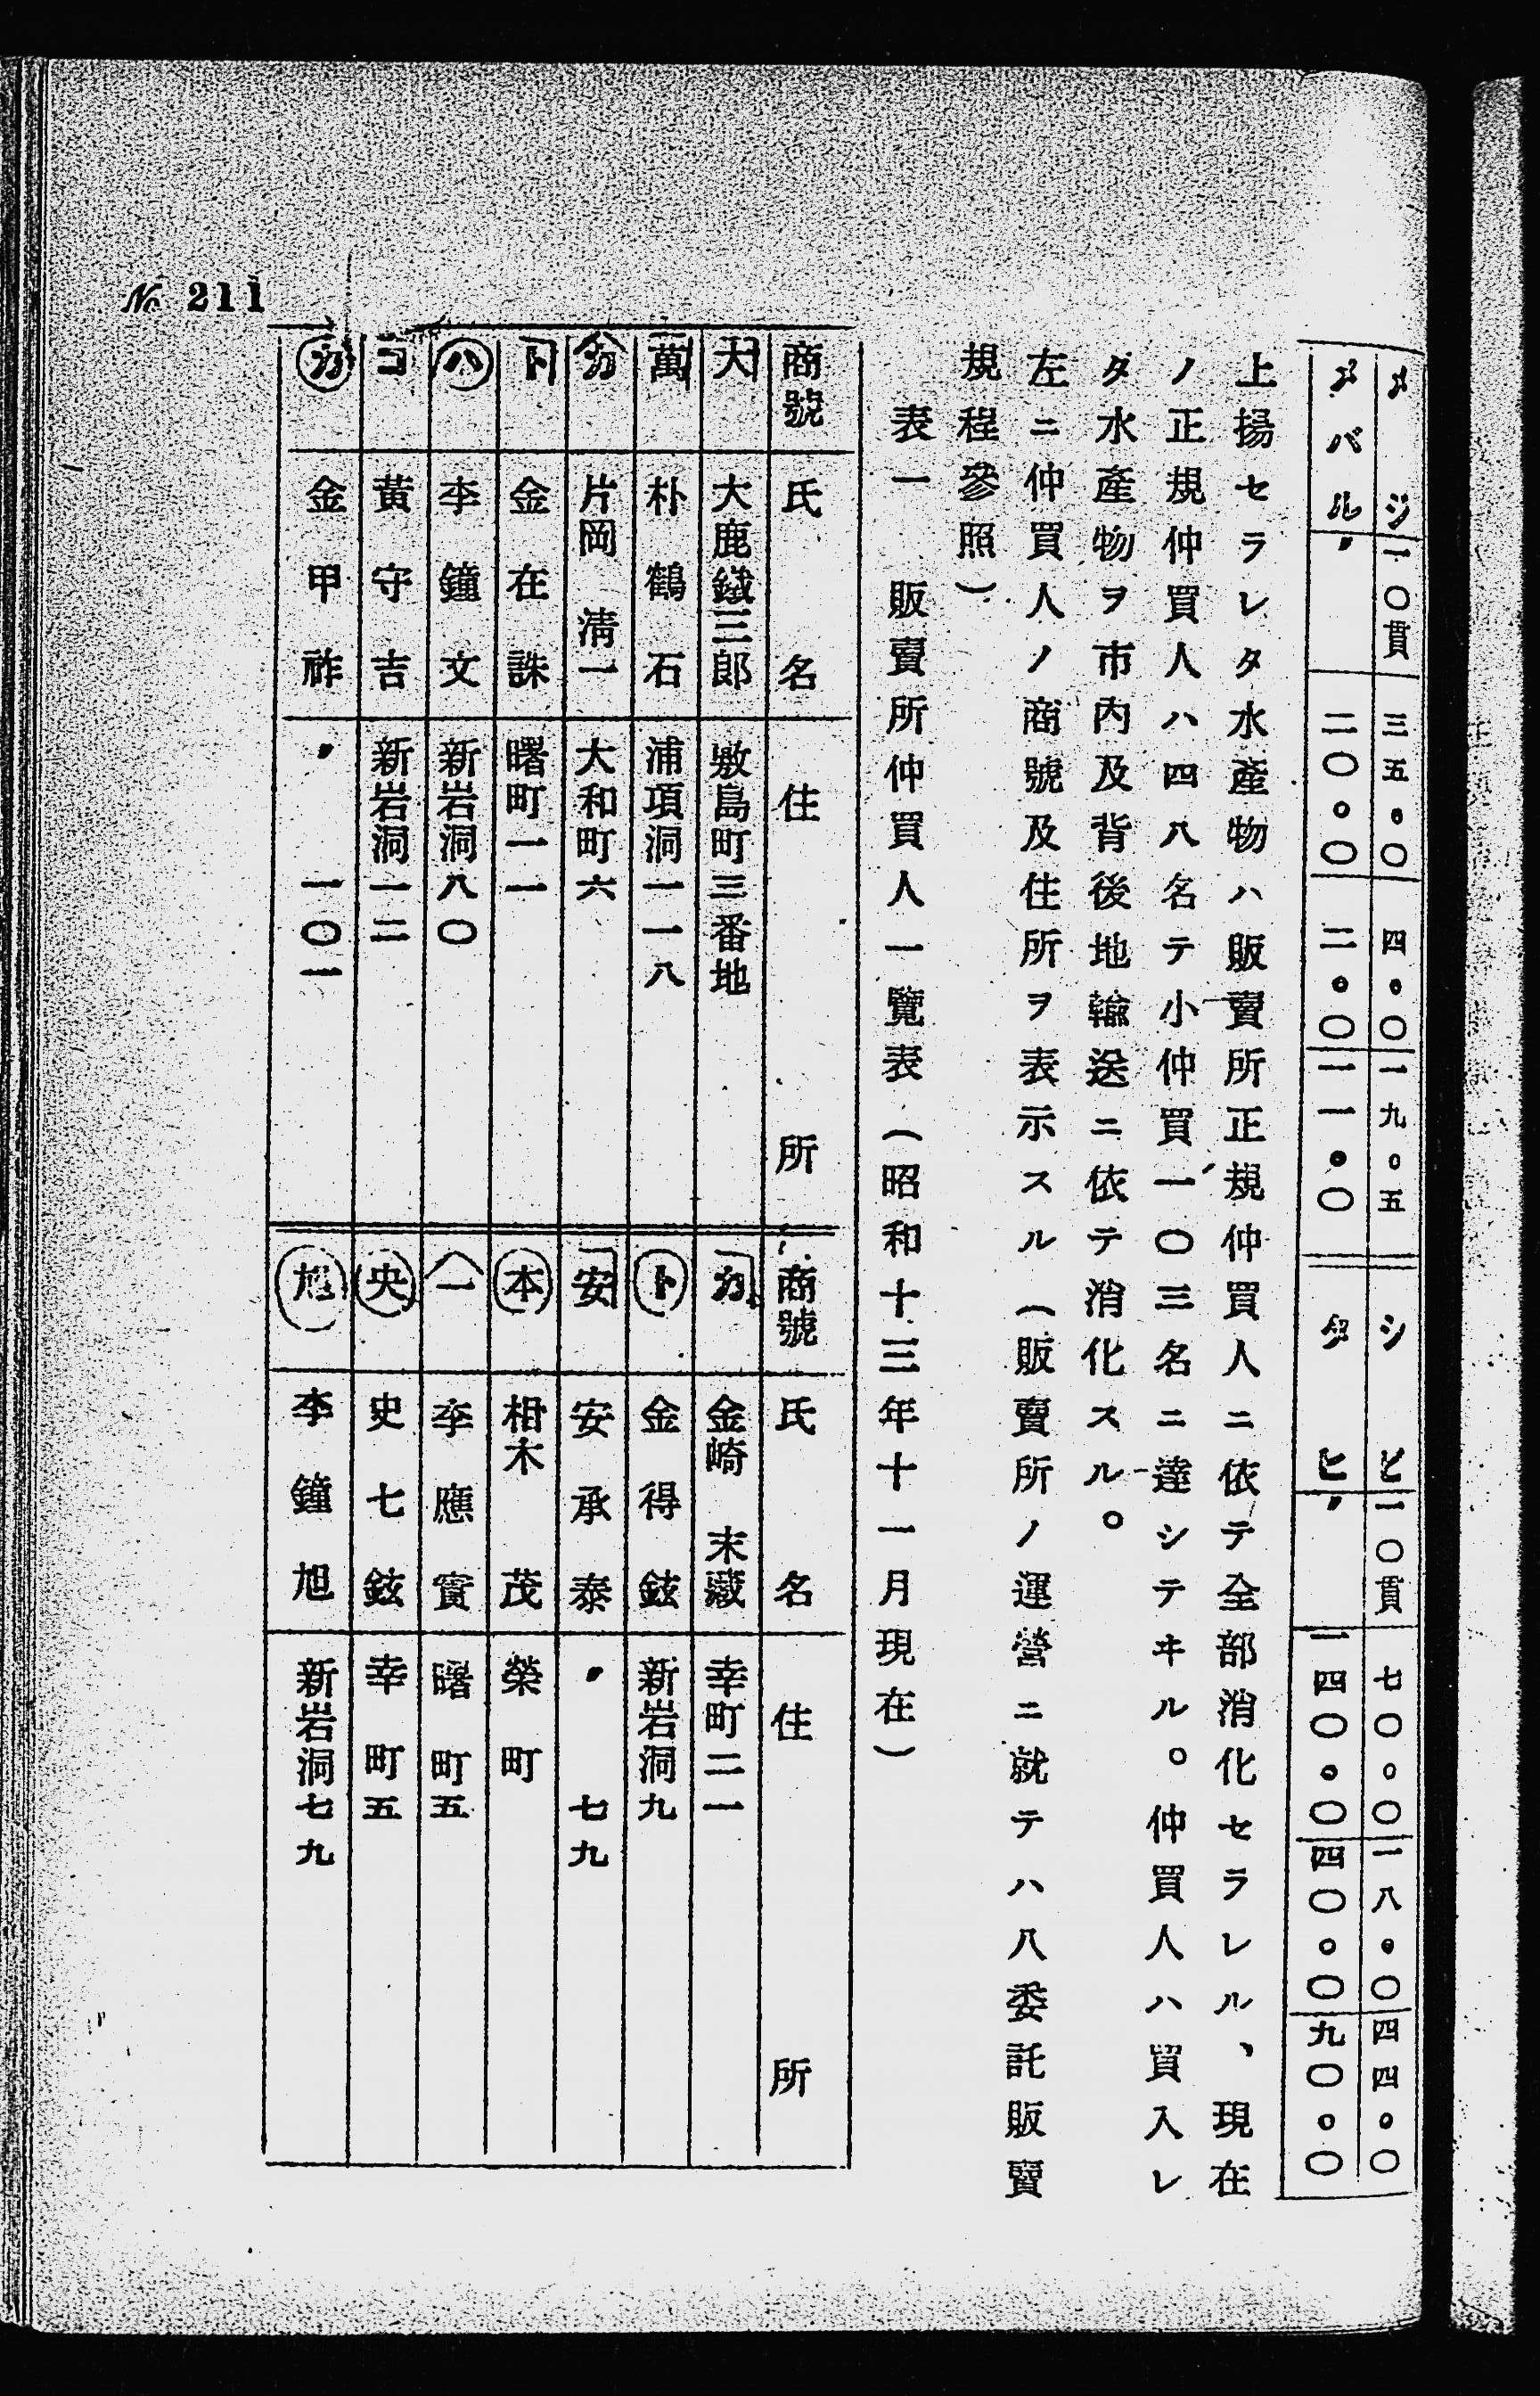 メジ 一〇貫 三五・〇 四・〇 一九・五 シビ 一〇貫 七〇・〇 一八・〇 四四・〇
メバル 〃 二〇・〇 二・〇 一一・〇 タヒ 〃 一四〇・〇 四〇・〇 九〇・〇
上揚セラレタ水產物ハ販賣所正規仲買人ニ依テ全部消化セラレル、現在
ノ正規仲買人ハ四八名テ小仲買一〇三名ニ達シテヰル。仲買人ハ買入レ
タ水產物ヲ市內及背後地輸送ニ依テ消化スル。
左ニ仲買人ノ商號及住所ヲ表示スル（販賣所ノ運營ニ就テハ八委託販賣
規程參照）
表一　販賣所仲買人一覽表（昭和十三年十一月現在）
商號 氏名 住所 商號 氏名 住所
大 大鹿鐵三郎 敷島町三番地 カ 金崎末藏 幸町二一
萬 朴鶴石 浦項洞一一八 ト 金得鉉 新岩洞九
カ 片岡淸一 大和町六 安 安承泰 〃 七九
ト 金在誅 曙町一一 本 相木茂 榮町
ハ 李鐘文 新岩洞八〇 一 李應實 曙町五
コ 黃守吉 新岩洞一二 央 史七鉉 幸町五
カ 金甲祚 〃 一〇一 旭 李鐘旭 新岩洞七九
№ 211